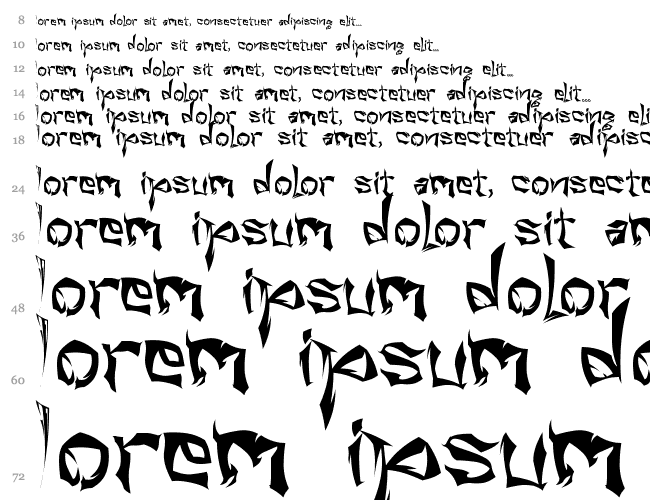 8 lorem ipsum dolor sit amet, consectetuer adipiscing elit...
10 lorem ipsum dolor sit amet, consectetuer adipiscing elit...
12 lorem ipsum dolor sit amet, consectetuer adipiscing elit...
14 lorem ipsum dolor sit amet, consectetuer adipiscing elit...
16 lorem ipsum dolor sit amet, consectetuer adipiscing eli
18 lorem ipsum dolor sit amet, consectetuer adipisc
24 lorem ipsum dolor sit amet, consecte
36 lorem ipsum dolor sit am
48 lorem ipsum dolor
60 lorem ipsum do
72 lorem ipsum